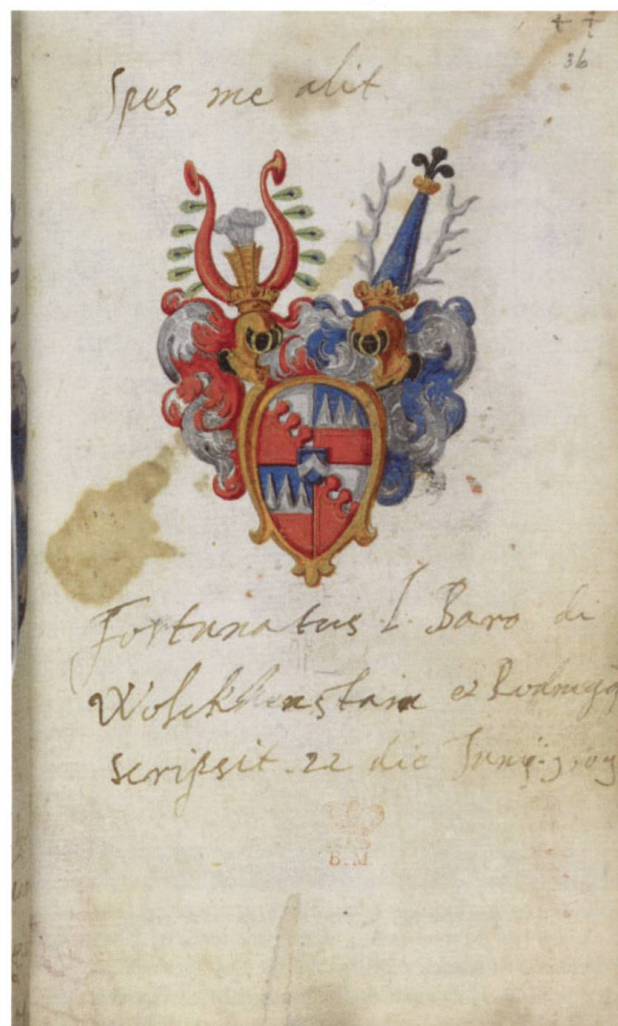 36
Spes me alit
Fortunatus L. Baro di
Wolckhenstain et
scripsit. 22 die Junij.
B.M.